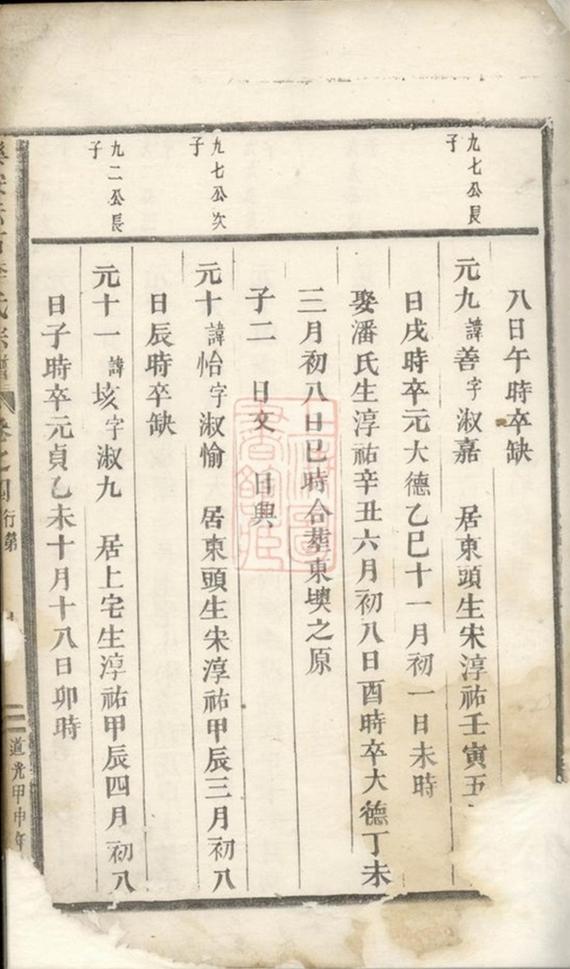 八日午時卒缺
九七公長
子
元九諱善字淑嘉 居東頭生宋淳祐壬寅五
日戌時卒元大德乙巳十一月初一日未時
娶潘氏生淳祐辛丑六月初八日酉時卒大德丁未
三月初八日巳時合塟東堧之原
子二 日文 日興
九七公次
子
元十諱怡字淑愉 居東頭生宋淳祐甲辰三月初八
日辰時卒缺
九二公長
子
元十一諱垓字淑九 居上宅生淳祐甲辰四月初八
日子時卒元貞乙未十月十八日卯時
氏宗譜 卷之四 行第
道光甲申年